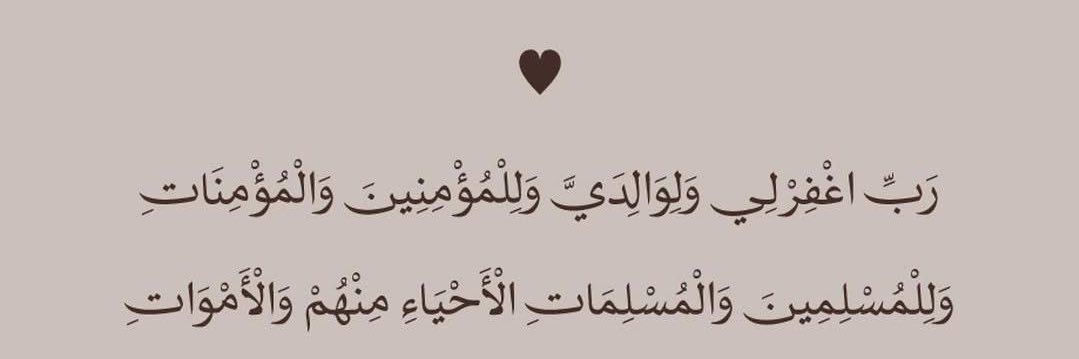 رَبِّ اغْفِرْ لِي وَلِوَالِدَيَّ وَلِلْمُؤْمِنِينَ وَالْمُؤْمِنَاتِ
وَلِلْمُسْلِمِينَ وَالْمُسْلِمَاتِ الْأَحْيَاءِ مِنْهُمْ وَالْأَمْوَاتِ